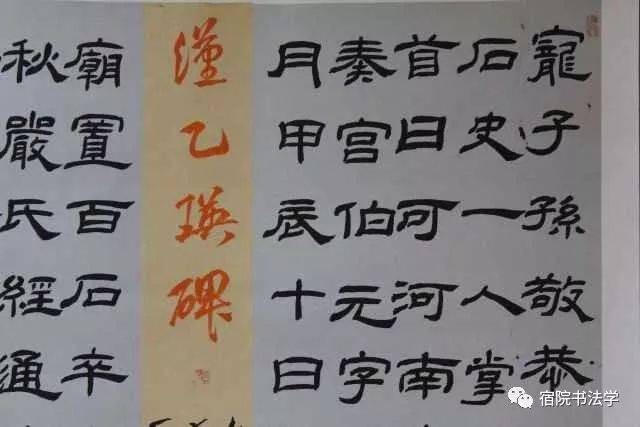 寵子孫敬恭
石史一人掌
首曰可河南
奏宫伯元字
月甲辰十日
漢乙瑛碑
廟置百石卒
秋嚴氏經通
宿院书法学